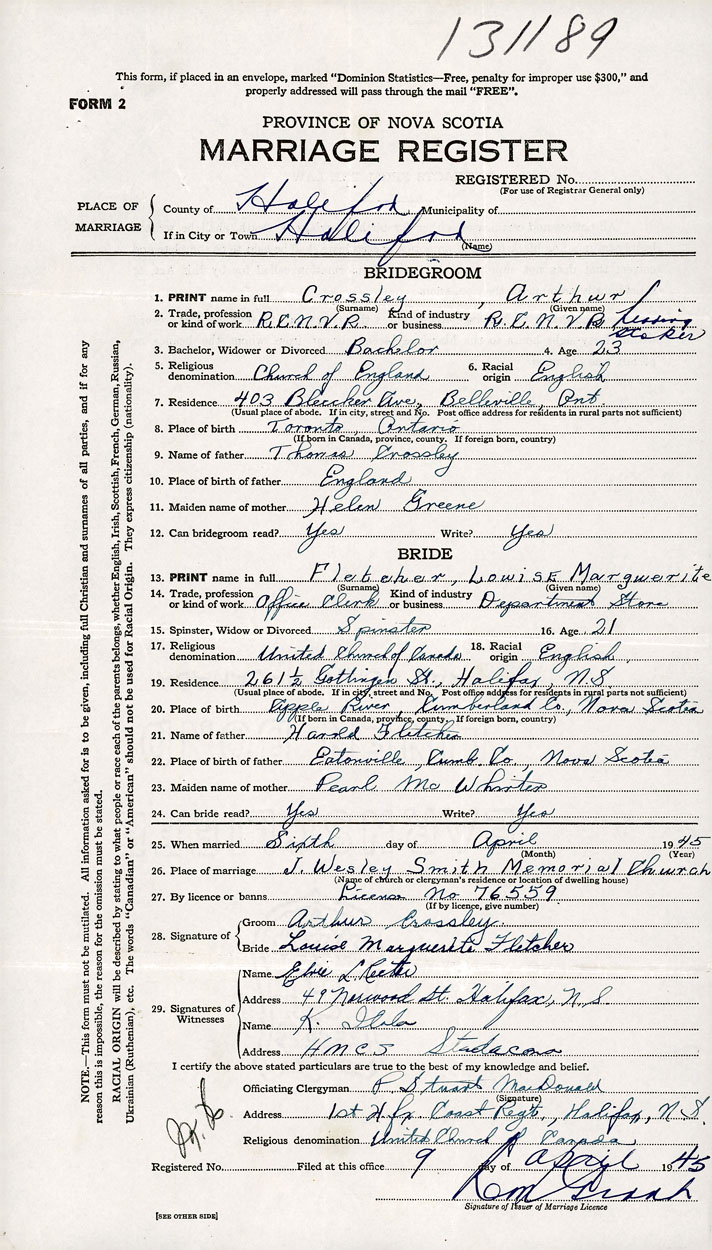 131189
This form, if placed in an envelope, marked "Dominion Statistics—Free, penalty for improper use $300," and
properly addressed will pass through the mail "FREE".
FORM 2
PROVINCE OF NOVA SCOTIA
MARRIAGE REGISTER
REGISTERED No.
(For use of Registrar General only)
PLACE OF MARRIAGE
County of Halifax Municipality of
If in City or Town Halifax
(Name)
BRIDEGROOM
1. PRINT name in full Crossley, Arthur
(Surname) (Given name)
2. Trade, profession or kind of work R.C.N.V.R. Kind of industry or business R.C.N.V.R. Stoker
3. Bachelor, Widower or Divorced Bachelor 4. Age 23
5. Religious denomination Church of England 6. Racial origin English
7. Residence 403 Bleecker Ave., Belleville, Ont.
(Usual place of abode. If in city, street and No. Post office address for residents in rural parts not sufficient)
8. Place of birth Toronto, Ontario
(If born in Canada, province, county. If foreign born, country)
9. Name of father Thomas Crossley
10. Place of birth of father England
11. Maiden name of mother Helen Greene
12. Can bridegroom read? Yes Write? Yes
BRIDE
13. PRINT name in full Fletcher, Louise Marguerite
(Surname) (Given name)
14. Trade, profession or kind of work Office Clerk Kind of industry or business Department Store
15. Spinster, Widow or Divorced Spinster 16. Age 21
17. Religious denomination United Church of Canada 18. Racial origin English
19. Residence 261½ Gottingen St., Halifax, N.S.
(Usual place of abode. If in city, street and No. Post office address for residents in rural parts not sufficient)
20. Place of birth Apple River, Cumberland Co., Nova Scotia
(If born in Canada, province, county. If foreign born, country)
21. Name of father Harold Fletcher
22. Place of birth of father Eatonville, Cumb. Co., Nova Scotia
23. Maiden name of mother Pearl Mc Whirter
24. Can bride read? Yes Write? Yes
25. When married Sixth day of April 1945
(Month) (Year)
26. Place of marriage J. Wesley Smith Memorial Church
(Name of church or clergyman's residence or location of dwelling house)
27. By licence or banns License No 76559
(If by licence, give number)
28. Signature of
Groom Arthur Crossley.
Bride Louise Marguerite Fletcher
29. Signatures of Witnesses
Name
Address 49 Norwood St. Halifax, N.S.
Name K.
Address HMCS Stadacona
I certify the above stated particulars are true to the best of my knowledge and belief.
Officiating Clergyman P. Stuart MacDonald
(Signature)
Address 1st Hfx. Coast Regt., Halifax, N.S.
Religious denomination United Church of Canada
Registered No. Filed at this office 9 day of April 1945
Signature of Issuer of Marriage Licence
[SEE OTHER SIDE]
NOTE.—This form must not be mutilated. All information asked for is to be given, including full Christian and surnames of all parties, and if for any
reason this is impossible, the reason for the omission must be stated.
RACIAL ORIGIN will be described by stating to what people or race each of the parents belongs, whether English, Irish, Scottish, French, German, Russian,
Ukrainian (Ruthenian), etc. The words "Canadian" or "American" should not be used for Racial Origin. They express citizenship (nationality).